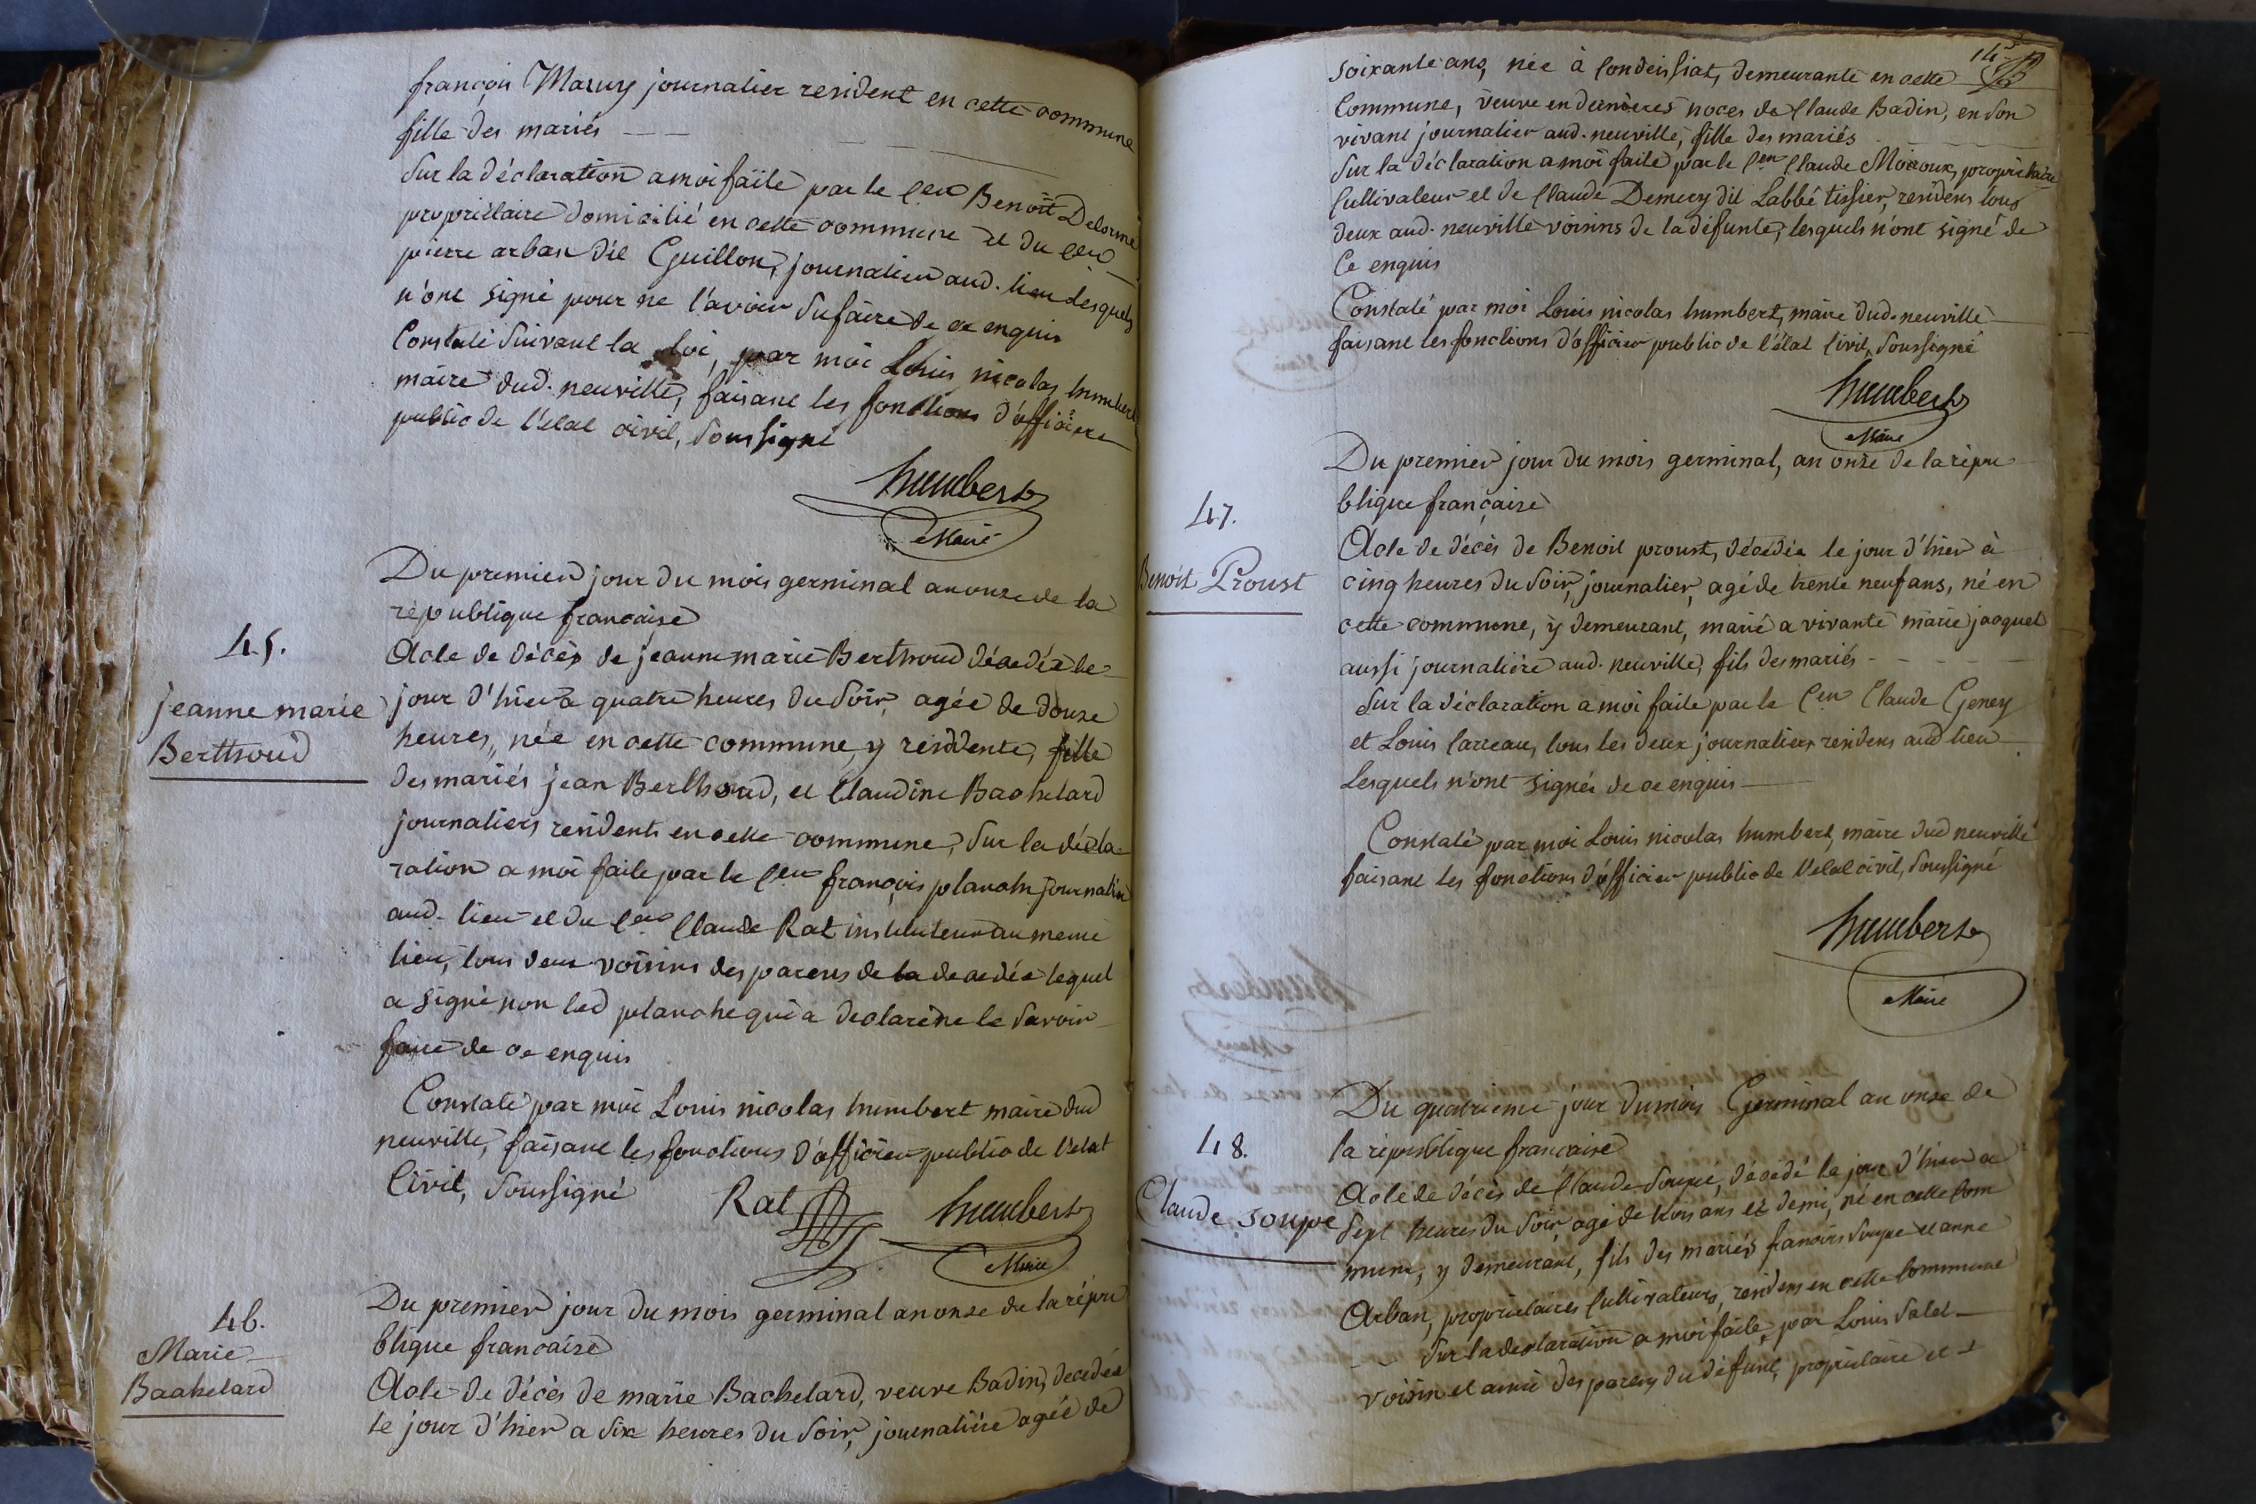 françois Maruy journalier resident en cette commune
fille des mariés
Sur la déclaration a moi faite par le Cen Benoit Delorme
propriétaire domicilié en cette commune et du Cen
pierre arban dit Guillon, journalier aud. lieu lesquels
n'ont signé pour ne l'avoir su faire de ce enquis
Constaté suivant la loi, par moi Louis nicolas humbert
maire dud. neuville, faisant les fonctions d'officier
public de l'etat civil, soussigné
humbert
Maire
45.
jeanne marie
Berthoud
Du premier jour du mois germinal an onze de la
république francaise
Acte de décès de jeanne marie Berthoud décedée le
jour d'hier a quatre heures du soir, agée de douze
heures, née en cette commune, y residente, fille
des mariés jean Berthoud, et Claudine Bachelard
journaliers residents en cette commune, sur la décla
ration a moi faite par le Cen françois planche journalier
aud. lieu et du Cen Claude Rat instituteur au meme
lieu, tous deux voisins des parens de la decedée lequel
a signé non led planche qui a declaré ne le savoir
faire de ce enquis
Constaté par moi Louis nicolas humbert maire dud
neuville, faisant les fonctions d'officier public de l'etat
Civil, soussigné
Rat
humbert
Maire
46.
Marie
Bachelard
Du premier jour du mois germinal an onze de la répu
blique francaise
Acte de décès de marie Bachelard, veuve Badin, decedée
le jour d'hier a six heures du soir, journalière agée de
145
soixante ans, née à Condeissiat, demeurante en cette
Commune, veuve en dernieres noces de Claude Badin, en son
vivant journalier aud. neuville, fille des mariés
Sur la déclaration a moi faite par le Cen Claude Moiroux, propriétaire
Cultivateur et de Claude Demery dit Labbé tissier, residens tous
deux aud. neuville voisins de la défunte, lesquels n'ont signé de
Ce enquis
Constaté par moi Louis nicolas humbert, maire dud. neuville
faisant les fonctions d'officier public de l'état Civil, soussigné
humbert
Maire
47.
Benoit Proust
Du premier jour du mois germinal, an onze de la répu
blique française
Acte de décès de Benoit proust, décédée le jour d'hier à
cinq heures du soir, journalier, agé de trente neuf ans, né en
cette commune, y demeurant, marié a vivante marie jacquet
aussi journalière aud. neuville, fils des mariés
Sur la déclaration a moi faite par le Cen Claude Geney
et Louis Carreau, tous les deux journaliers residens aud lieu
Lesquels n'ont signés de ce enquis
Constaté par moi Louis nicolas humbert, maire dud neuville
faisant les fonctions d'officier public de l'etat civil, soussigné
humbert
Maire
48.
Claude soupe
Du quatrieme jour du mois Germinal an onze de
la république francaise
Acte de décès de Claude Soupe, décédé le jour d'hier a
sept heures du soir, agé de trois ans et demi, né en cette Com
mune, y demeurant, fils des mariés francois Soupe et anne
Arban, propriétaires Cultivateurs, residens en cette Commune
Sur la declaration a moi faite, par Louis Salet
voisin et ami des parens du défunt, propriétaire et